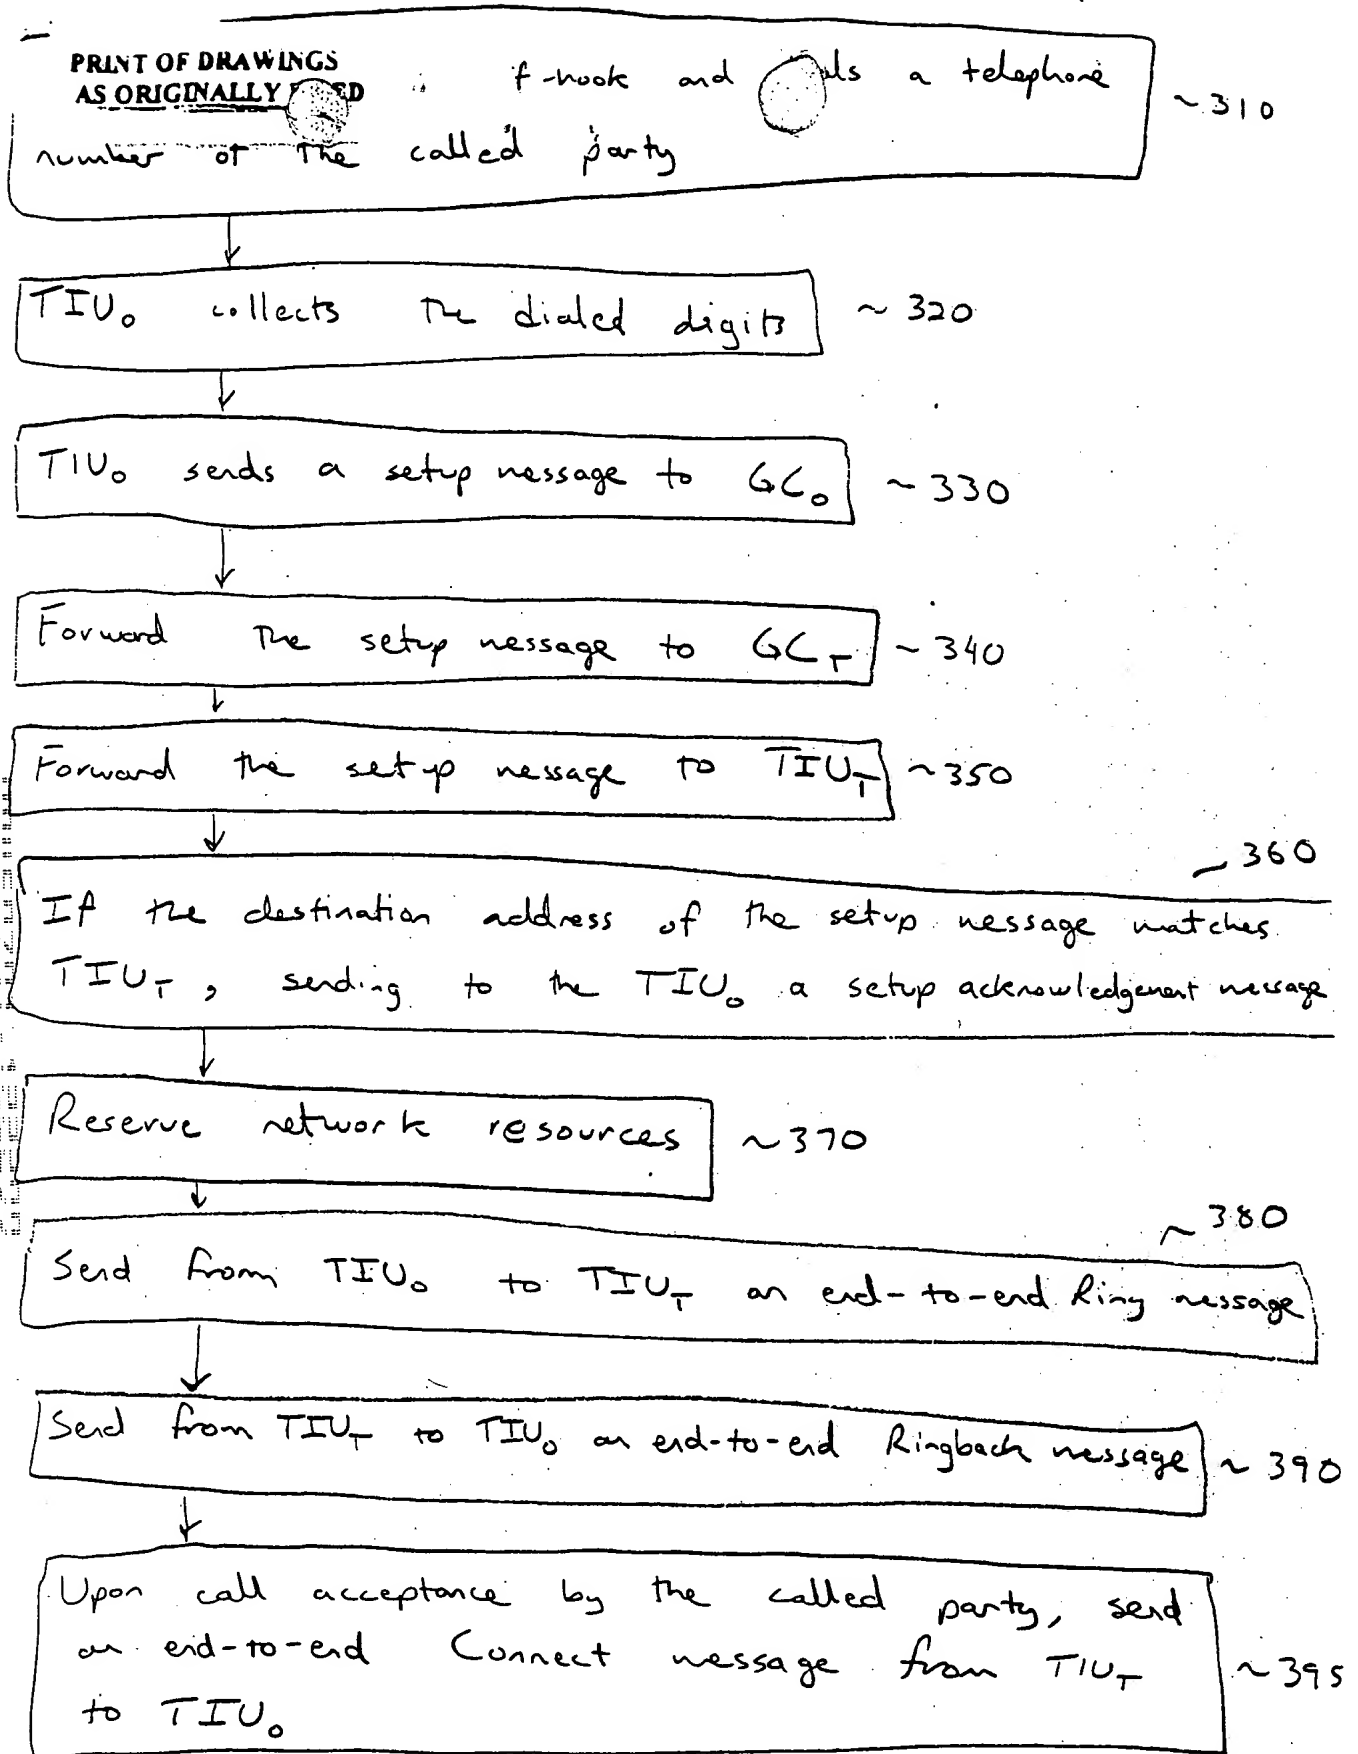 PRINT OF DRAWINGS
AS ORIGINALLY
f-hook and a telephone
~310
number of the called party
TIU₀ collects the dialed digits ~320
TIU₀ sends a setup message to GC₀ ~330
Forward the setup message to GC_T ~340
Forward the setup message to TIU_T ~350
~360
If the destination address of the setup message matches
TIU_T, sending to the TIU₀ a setup acknowledgement message
Reserve network resources ~370
~380
Send from TIU₀ to TIU_T an end-to-end Ring message
Send from TIU_T to TIU₀ an end-to-end Ringback message ~390
Upon call acceptance by the called party, send
an end-to-end Connect message from TIU_T ~395
to TIU₀